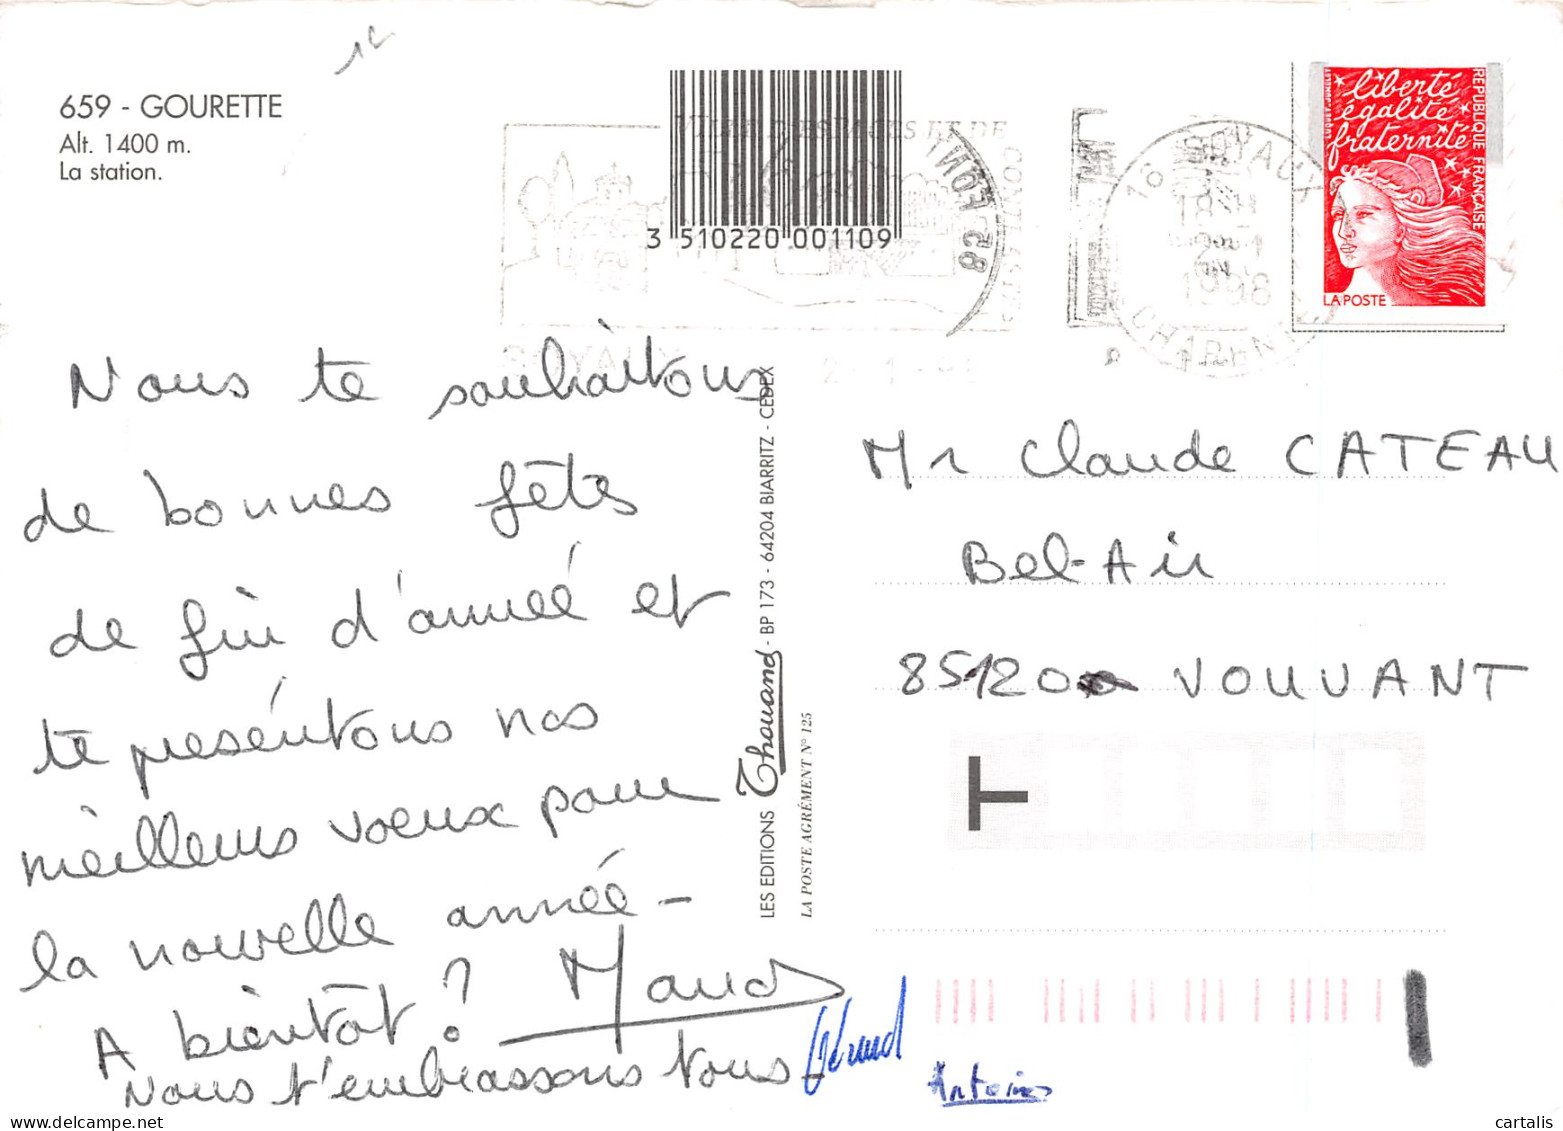 659 - GOURETTE
Alt. 1400 m.
La station.
3 510220 001109
16 SOYAUX
1998
CHARENTE
liberté
égalité
fraternité
RÉPUBLIQUE FRANÇAISE
LA POSTE
Nous te souhaitons
de bonnes fêtes
de fin d'année et
te présentons nos
meilleurs voeux pour
la nouvelle année -
A bientôt ? Maud
Nous t'embrassons tous
Gérard
Antoine
LES EDITIONS Thouand - BP 173 - 64204 BIARRITZ - CEDEX
LA POSTE AGRÉMENT N° 125
Mr Claude CATEAU
Bel-Air
85120 VOUVANT
T
cartalis